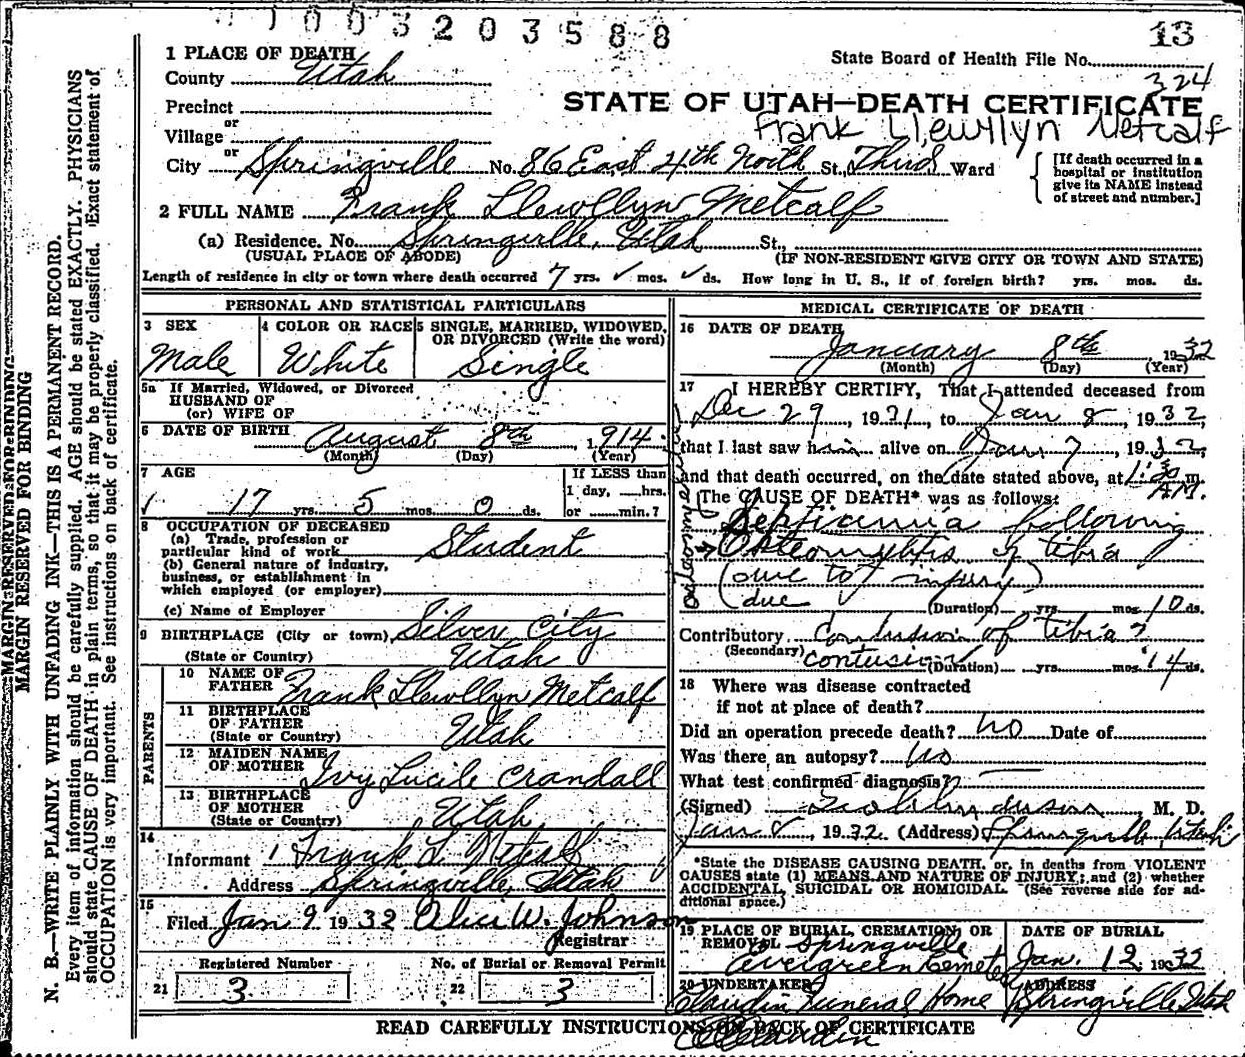 1003203588
13
State Board of Health File No.
324
1 PLACE OF DEATH
County Utah
STATE OF UTAH—DEATH CERTIFICATE
Precinct
or
Frank Llewllyn Metcalf
Village
or
City Springville No. 86 East 4th North St., Third Ward
[If death occurred in a
hospital or institution
give its NAME instead
of street and number.]
2 FULL NAME Frank Llewllyn Metcalf
(a) Residence. No. Springville, Utah St.,
(USUAL PLACE OF ABODE) (IF NON-RESIDENT GIVE CITY OR TOWN AND STATE)
Length of residence in city or town where death occurred 7 yrs. ✓ mos. ✓ ds. How long in U. S., if of foreign birth? yrs. mos. ds.
PERSONAL AND STATISTICAL PARTICULARS
3 SEX
Male
4 COLOR OR RACE
White
5 SINGLE, MARRIED, WIDOWED,
OR DIVORCED (Write the word)
Single
5a If Married, Widowed, or Divorced
HUSBAND OF
(or) WIFE OF
6 DATE OF BIRTH August 8th, 1914
(Month) (Day) (Year)
7 AGE
17 yrs. 5 mos. 0 ds.
If LESS than
1 day, ......hrs.
or ......min.?
8 OCCUPATION OF DECEASED
(a) Trade, profession or
particular kind of work Student
(b) General nature of industry,
business, or establishment in
which employed (or employer)
(c) Name of Employer
9 BIRTHPLACE (City or town) Silver City
(State or Country) Utah
PARENTS
10 NAME OF
FATHER Frank Llewllyn Metcalf
11 BIRTHPLACE
OF FATHER
(State or Country) Utah
12 MAIDEN NAME
OF MOTHER Ivy Lucile Crandall
13 BIRTHPLACE
OF MOTHER
(State or Country) Utah
14
Informant Frank L. Metcalf
Address Springville, Utah
15
Filed Jan 9 1932 Alice W. Johnson
Registrar
Registered Number
21 3
No. of Burial or Removal Permit
22 3
MEDICAL CERTIFICATE OF DEATH
16 DATE OF DEATH
January 8th, 1932
(Month) (Day) (Year)
17 I HEREBY CERTIFY, That I attended deceased from
Dec 29, 1931, to Jan 8, 1932,
that I last saw him alive on Jan 7, 1932,
and that death occurred, on the date stated above, at 1:30 m.
A.M.
The CAUSE OF DEATH* was as follows:
Septicemia following
→ Osteomyelitis of tibia
(due to injury)
(due (Duration) yrs. mos. 10 ds.
Contributory Contusion of tibia?
(Secondary) contusion (Duration) yrs. mos. 14 ds.
18 Where was disease contracted
if not at place of death?
Did an operation precede death? no Date of
Was there an autopsy? no
What test confirmed diagnosis?
(Signed) M. D.
Jan 8, 1932. (Address) Springville, Utah
*State the DISEASE CAUSING DEATH, or, in deaths from VIOLENT
CAUSES state (1) MEANS AND NATURE OF INJURY; and (2) whether
ACCIDENTAL, SUICIDAL OR HOMICIDAL. (See reverse side for ad-
ditional space.)
19 PLACE OF BURIAL, CREMATION, OR
REMOVAL Springville
Evergreen Cemetery
DATE OF BURIAL
Jan. 12 1932
20 UNDERTAKER
Claudin Funeral Home
ADDRESS
Springville Utah
READ CAREFULLY INSTRUCTIONS ON BACK OF CERTIFICATE
Claudin
MARGIN RESERVED FOR BINDING
MARGIN RESERVED FOR BINDING
N. B.—WRITE PLAINLY WITH UNFADING INK—THIS IS A PERMANENT RECORD.
Every item of information should be carefully supplied. AGE should be stated EXACTLY. PHYSICIANS
should state CAUSE OF DEATH in plain terms, so that it may be properly classified. Exact statement of
OCCUPATION is very important. See instructions on back of certificate.